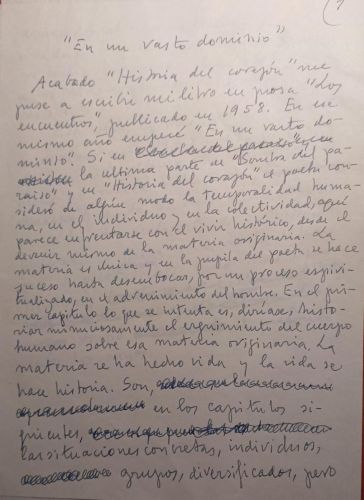 "En un vasto dominio"
Acabado "Historia del corazón" me
puse a escribir mi libro en prosa "Los
encuentros", publicado en 1958. En ese
mismo año empecé "En un vasto do-
minio". Si en
la ultima parte de "Sombra del pa-
raiso" y en "Historia del corazón" el poeta con-
sideró de algún modo la temporalidad huma-
na, en el individuo y en la colectividad, aquí
parece enfrentarse con el vivir histórico, desde el
devenir mismo de la materia originaria. La
materia es única y en la pupila del poeta se hace
suceso hasta desembocar, por un proceso espiri-
tualizado, en el advenimiento del hombre. En el pri-
mer capítulo lo que se intenta es, diríase, histo-
riar minuciosamente el erguimiento del cuerpo
humano sobre esa materia originaria. La
materia se ha hecho vida y la vida se
hace historia. Son,
en los capítulos si-
guientes,
las situaciones concretas, individuos,
grupos, diversificados, pero